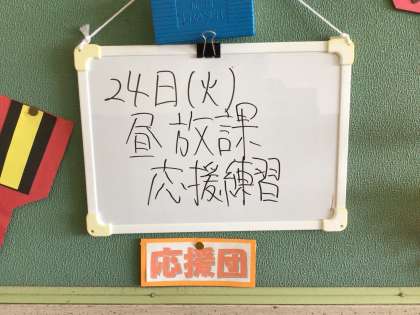 24日(火)
昼放課
応援練習
応援団